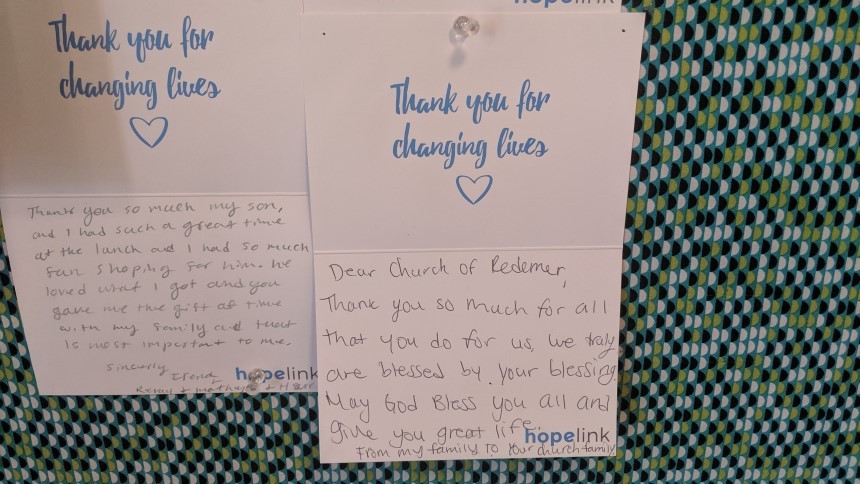 hopelink
Thank you for
changing lives
Thank you so much my son,
and I had such a great time
at the lunch and I had so much
fun shoping for him. he
loved what I got and you
gave me the gift of time
with my family and that
is most important to me.
sincerly
hopelink
Thank you for
changing lives
Dear Church of Redemer,
Thank you so much for all
that you do for us, we truly
are blessed by your blessing.
May God Bless you all and
give you great life.
hopelink
From my family to your church family